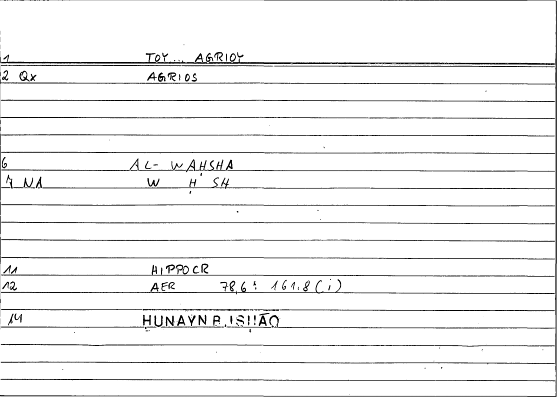 1 TOY... AGRIOY
2 Qx AGRIOS
6 AL- WAḤSHA
7 NA W Ḥ SH
11 HIPPOCR
12 AER 78,6: 161.8(i)
14 ḤUNAYN B. ISḤĀQ